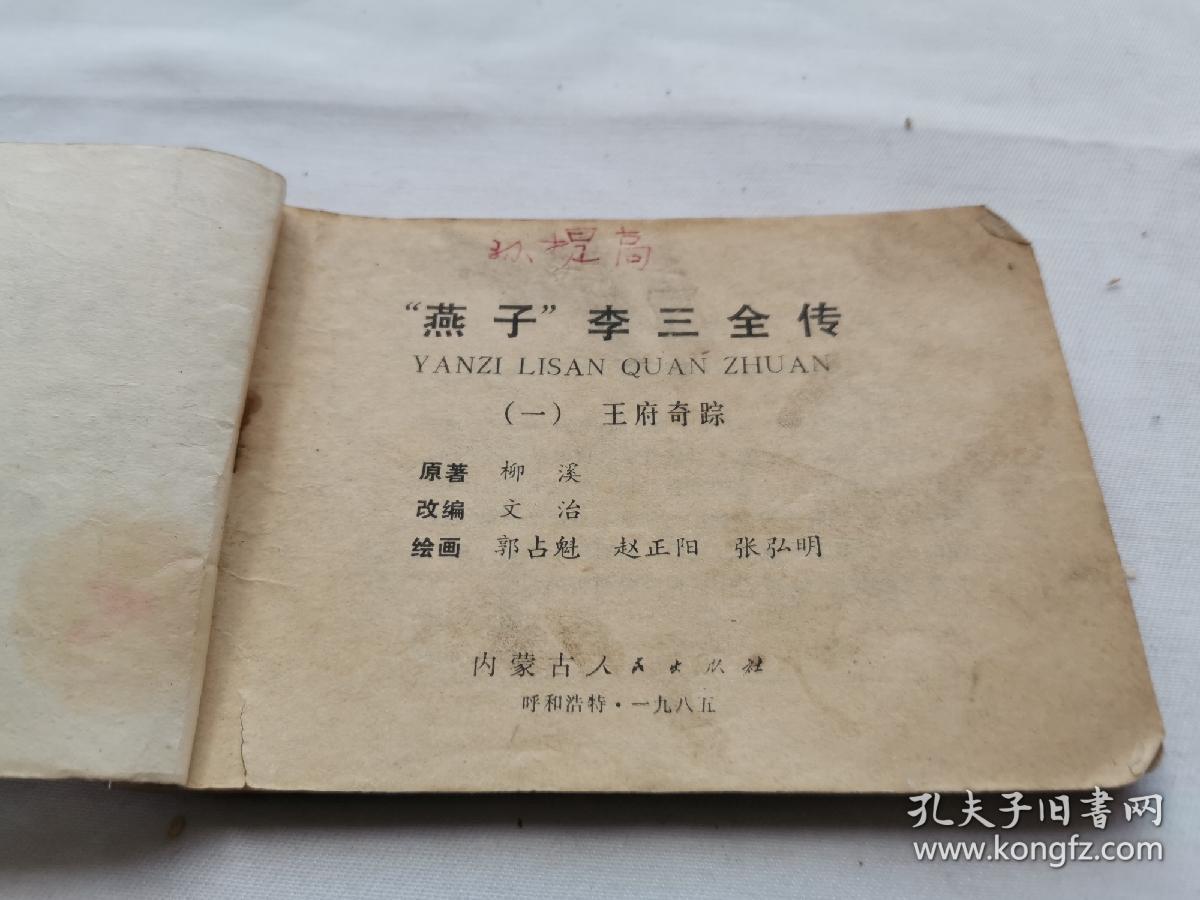 提高
“燕子”李三全传
YANZI LISAN QUAN ZHUAN
（一） 王府奇踪
原著 柳溪
改编 文治
绘画 郭占魁 赵正阳 张弘明
内蒙古人民出版社
呼和浩特·一九八五
孔夫子旧书网
www.kongfz.com